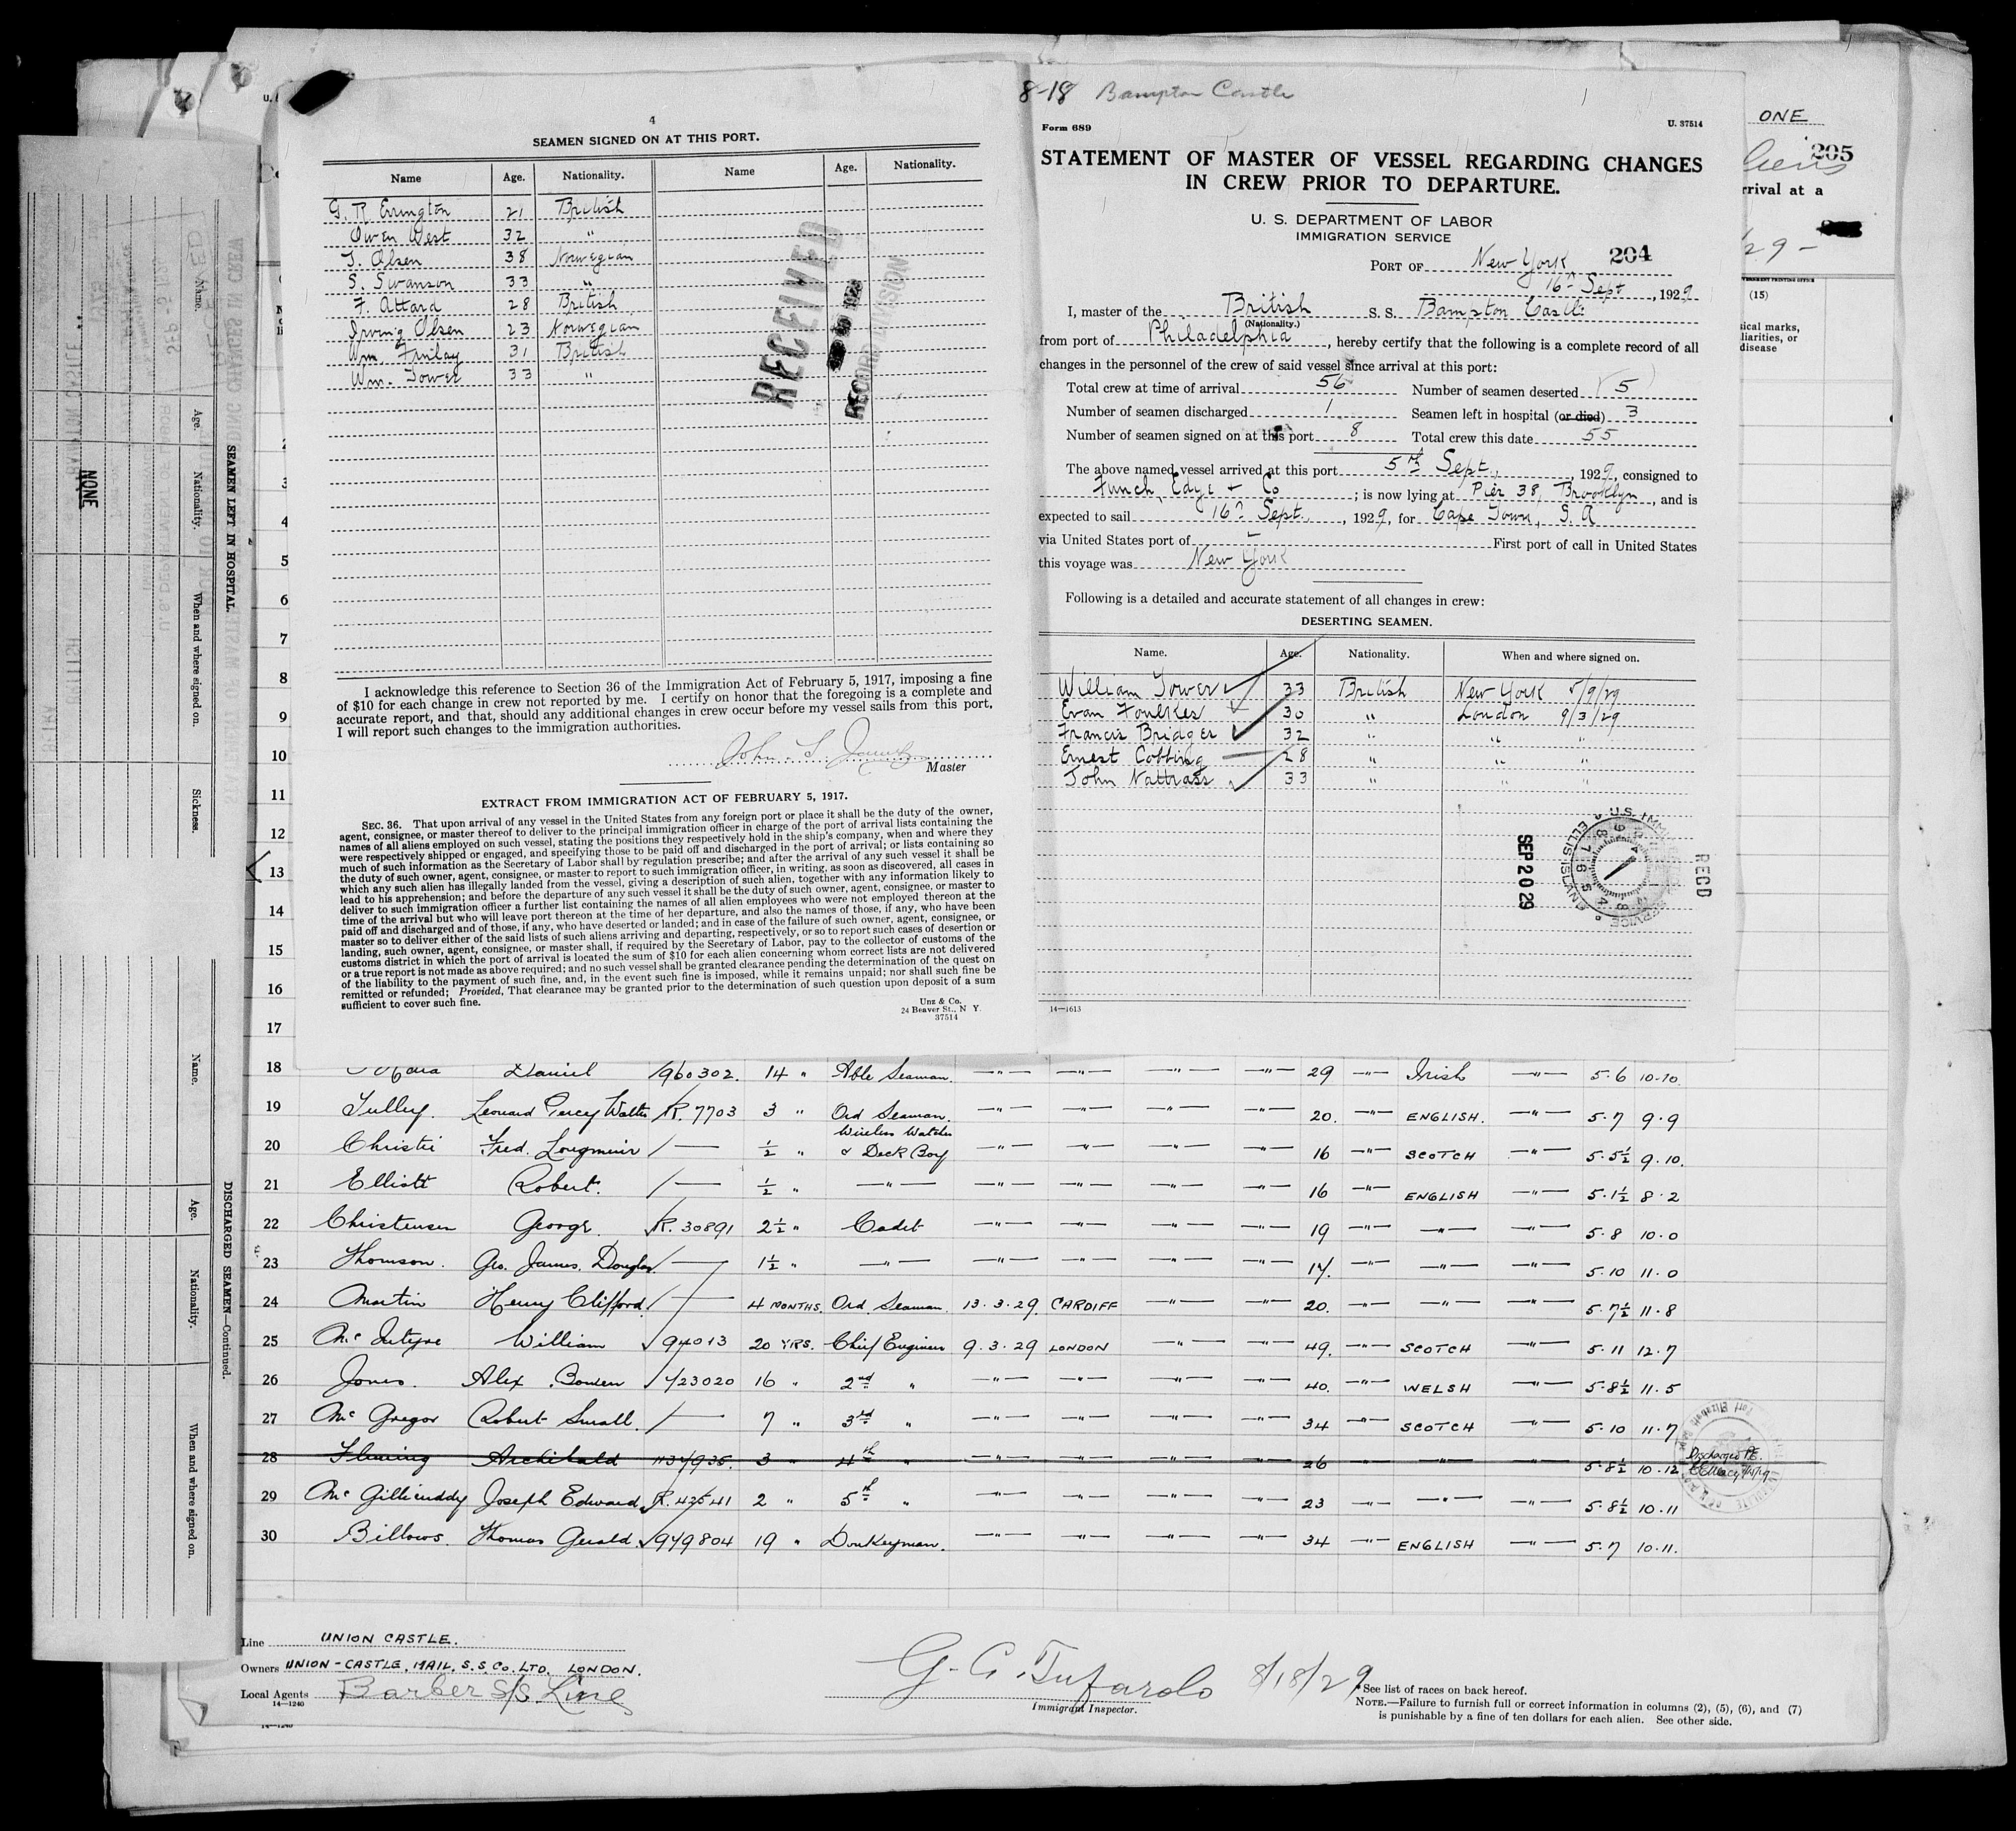 8-18 Bampton Castle
4
SEAMEN SIGNED ON AT THIS PORT.
Name Age. Nationality. Name Age. Nationality.
G. R. Errington 21 British
Owen West 32 "
T. Olsen 38 Norwegian
S. Swanson 33 "
F. Attard 28 British
Irving Olsen 23 Norwegian
Wm. Finlay 31 British
Wm. Tower 33 "
RECEIVED
RECORD DIVISION
I acknowledge this reference to Section 36 of the Immigration Act of February 5, 1917, imposing a fine
of $10 for each change in crew not reported by me. I certify on honor that the foregoing is a complete and
accurate report, and that, should any additional changes in crew occur before my vessel sails from this port,
I will report such changes to the immigration authorities.
John S.
Master
EXTRACT FROM IMMIGRATION ACT OF FEBRUARY 5, 1917.
SEC. 36. That upon arrival of any vessel in the United States from any foreign port or place it shall be the duty of the owner,
agent, consignee, or master thereof to deliver to the principal immigration officer in charge of the port of arrival lists containing the
names of all aliens employed on such vessel, stating the positions they respectively hold in the ship's company, when and where they
were respectively shipped or engaged, and specifying those to be paid off and discharged in the port of arrival; or lists containing so
much of such information as the Secretary of Labor shall by regulation prescribe; and after the arrival of any such vessel it shall be
the duty of such owner, agent, consignee, or master to report to such immigration officer, in writing, as soon as discovered, all cases in
which any such alien has illegally landed from the vessel, giving a description of such alien, together with any information likely to
lead to his apprehension; and before the departure of any such vessel it shall be the duty of such owner, agent, consignee, or master to
deliver to such immigration officer a further list containing the names of all alien employees who were not employed thereon at the
time of the arrival but who will leave port thereon at the time of her departure, and also the names of those, if any, who have been
paid off and discharged and of those, if any, who have deserted or landed; and in case of the failure of such owner, agent, consignee, or
master so to deliver either of the said lists of such aliens arriving and departing, respectively, or so to report such cases of desertion or
landing, such owner, agent, consignee, or master shall, if required by the Secretary of Labor, pay to the collector of customs of the
customs district in which the port of arrival is located the sum of $10 for each alien concerning whom correct lists are not delivered
or a true report is not made as above required; and no such vessel shall be granted clearance pending the determination of the quest on
of the liability to the payment of such fine, and, in the event such fine is imposed, while it remains unpaid; nor shall such fine be
remitted or refunded; Provided, That clearance may be granted prior to the determination of such question upon deposit of a sum
sufficient to cover such fine.
Unz & Co.
24 Beaver St., N Y.
37514
Form 689 U. 37514
STATEMENT OF MASTER OF VESSEL REGARDING CHANGES
IN CREW PRIOR TO DEPARTURE.
U. S. DEPARTMENT OF LABOR
IMMIGRATION SERVICE
204
PORT OF New York
16th Sept, 1929
I, master of the British S. S. Bampton Castle
(Nationality.)
from port of Philadelphia, hereby certify that the following is a complete record of all
changes in the personnel of the crew of said vessel since arrival at this port:
Total crew at time of arrival 56 Number of seamen deserted 5
Number of seamen discharged 1 Seamen left in hospital (or died) 3
Number of seamen signed on at this port 8 Total crew this date 55
The above named vessel arrived at this port 5th Sept, 1929, consigned to
Funch, Edye + Co; is now lying at Pier 38, Brooklyn, and is
expected to sail 16th Sept., 1929, for Cape Town, S. A
via United States port of — First port of call in United States
this voyage was New York
Following is a detailed and accurate statement of all changes in crew:
DESERTING SEAMEN.
Name. Age. Nationality. When and where signed on.
William Tower 33 British New York 5/9/29
Evan Foulkes 30 " London 9/3/29
Francis Bridger 32 " " "
Ernest Cobbing 28 " " "
John Nattrass 33 " " "
SEP 20 29
REC'D
U.S. IMMIGRATION SERVICE ELLIS ISLAND
14—1613
ONE
205
Aliens
rrival at a
/29 -
(15)
ical marks,
liarities, or
disease
SEAMEN LEFT IN HOSPITAL.
Name. Age. Nationality. When and where signed on. Sickness.
NONE
DISCHARGED SEAMEN—Continued.
Name. Age. Nationality. When and where signed on.
2
3
4
5
6
7
8
9
10
11
12
13
14
15
16
17
18 Daniel 960302. 14 " Able Seaman. —"— —"— —"— —"— 29 —"— Irish —"— 5.6 10-10.
19 Tulley. Leonard Percy Walter R. 7703 3 " Ord Seaman. —"— —"— —"— —"— 20. —"— ENGLISH. —"— 5.7 9.9
20 Christie Fred. Longmuir — ½ " Wireless Watcher & Deck Boy —"— —"— —"— —"— 16 —"— SCOTCH —"— 5.5½ 9.10.
21 Elliott Robert. — ½ " —"— —"— —"— —"— —"— 16 —"— ENGLISH —"— 5.1½ 8.2
22 Christensen George. R. 30891 2½ " Cadet —"— —"— —"— —"— 19 —"— —"— —"— 5.8 10.0
23 Thomson. Geo. James. Douglas. — 1½ " —"— —"— —"— —"— —"— 17. —"— —"— —"— 5.10 11.0
24 Martin Henry Clifford. — 4 MONTHS. Ord. Seaman. 13.3.29 CARDIFF —"— —"— 20. —"— —"— —"— 5.7½ 11.8
25 McIntyre William 94013 20 YRS. Chief Engineer 9.3.29 LONDON —"— —"— 49. —"— SCOTCH —"— 5.11 12.7
26 Jones. Alex. Bowen 723020 16 " 2nd " —"— —"— —"— —"— 40. —"— WELSH —"— 5.8½ 11.5
27 McGregor Robert Small. — 7 " 3rd " —"— —"— —"— —"— 34 —"— SCOTCH —"— 5.10 11.7
28 Fleming Archibald 1134935. 3 " 4th " —"— —"— —"— —"— 26 —"— —"— —"— 5.8½ 10.12 Discharged P.E.
29 McGillicuddy Joseph Edward R. 42541 2 " 5th " —"— —"— —"— —"— 23 —"— —"— —"— 5.8½ 10.11
30 Billows. Thomas Gerald. 949804 19 " Donkeyman. —"— —"— —"— —"— 34 —"— ENGLISH —"— 5.7 10.11.
Line UNION CASTLE.
Owners UNION-CASTLE, MAIL. S.S. Co. LTD. LONDON.
Local Agents Barber S/S. Line
14—1240
G. C. Tufarolo 8/18/29
Immigrant Inspector.
*See list of races on back hereof.
NOTE.—Failure to furnish full or correct information in columns (2), (5), (6), and (7)
is punishable by a fine of ten dollars for each alien. See other side.
14—1240